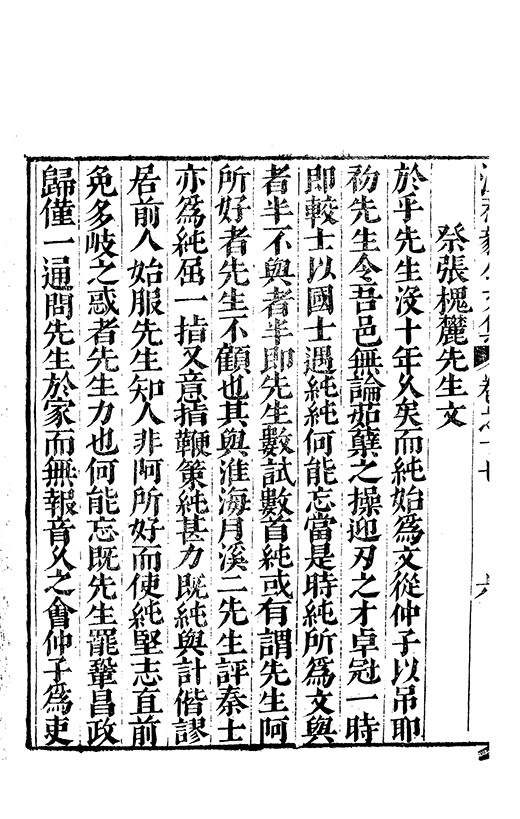 祭張槐麓先生文
於乎先生沒十年久矣而純始爲文從仲子以吊耶
初先生令吾邑無論茹蘗之操迎刃之才卓冠一時
即較士以國士遇純純何能忘當是時純所爲文與
者半不與者半即先生數試數首純或有謂先生阿
所好者先生不顧也其與淮海月溪二先生評秦士
亦爲純屈一指又意指鞭策純甚力既純與計偕謬
居前人始服先生知人非阿所好而使純堅志直前
免多岐之惑者先生力也何能忘既先生罷鞏昌政
歸僅一通問先生於家而無報音久之會仲子爲吏